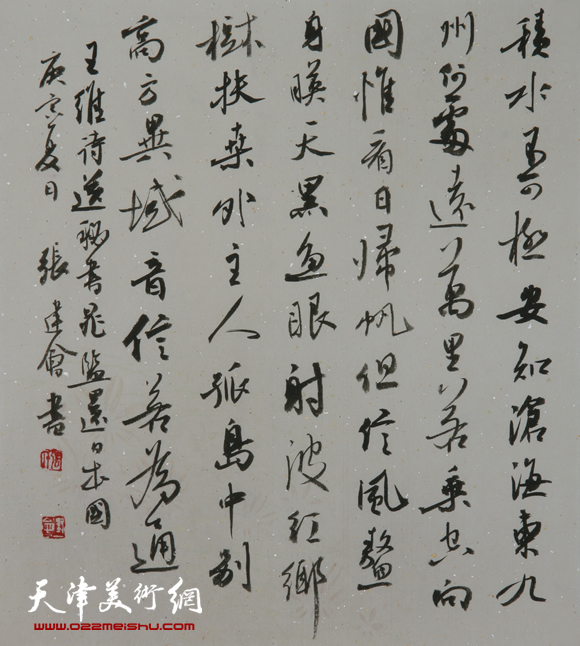 積水不可極安知滄海東九
州何處遠萬里若乘空向
國惟看日歸帆但信風鰲
身暎天黑魚眼射波紅鄉
樹扶桑外主人孤島中別
离方異域音信若為通
王維詩送秘書晁監還日本國
庚寅夏日 張建會書
天津美術網
www.022meishu.com